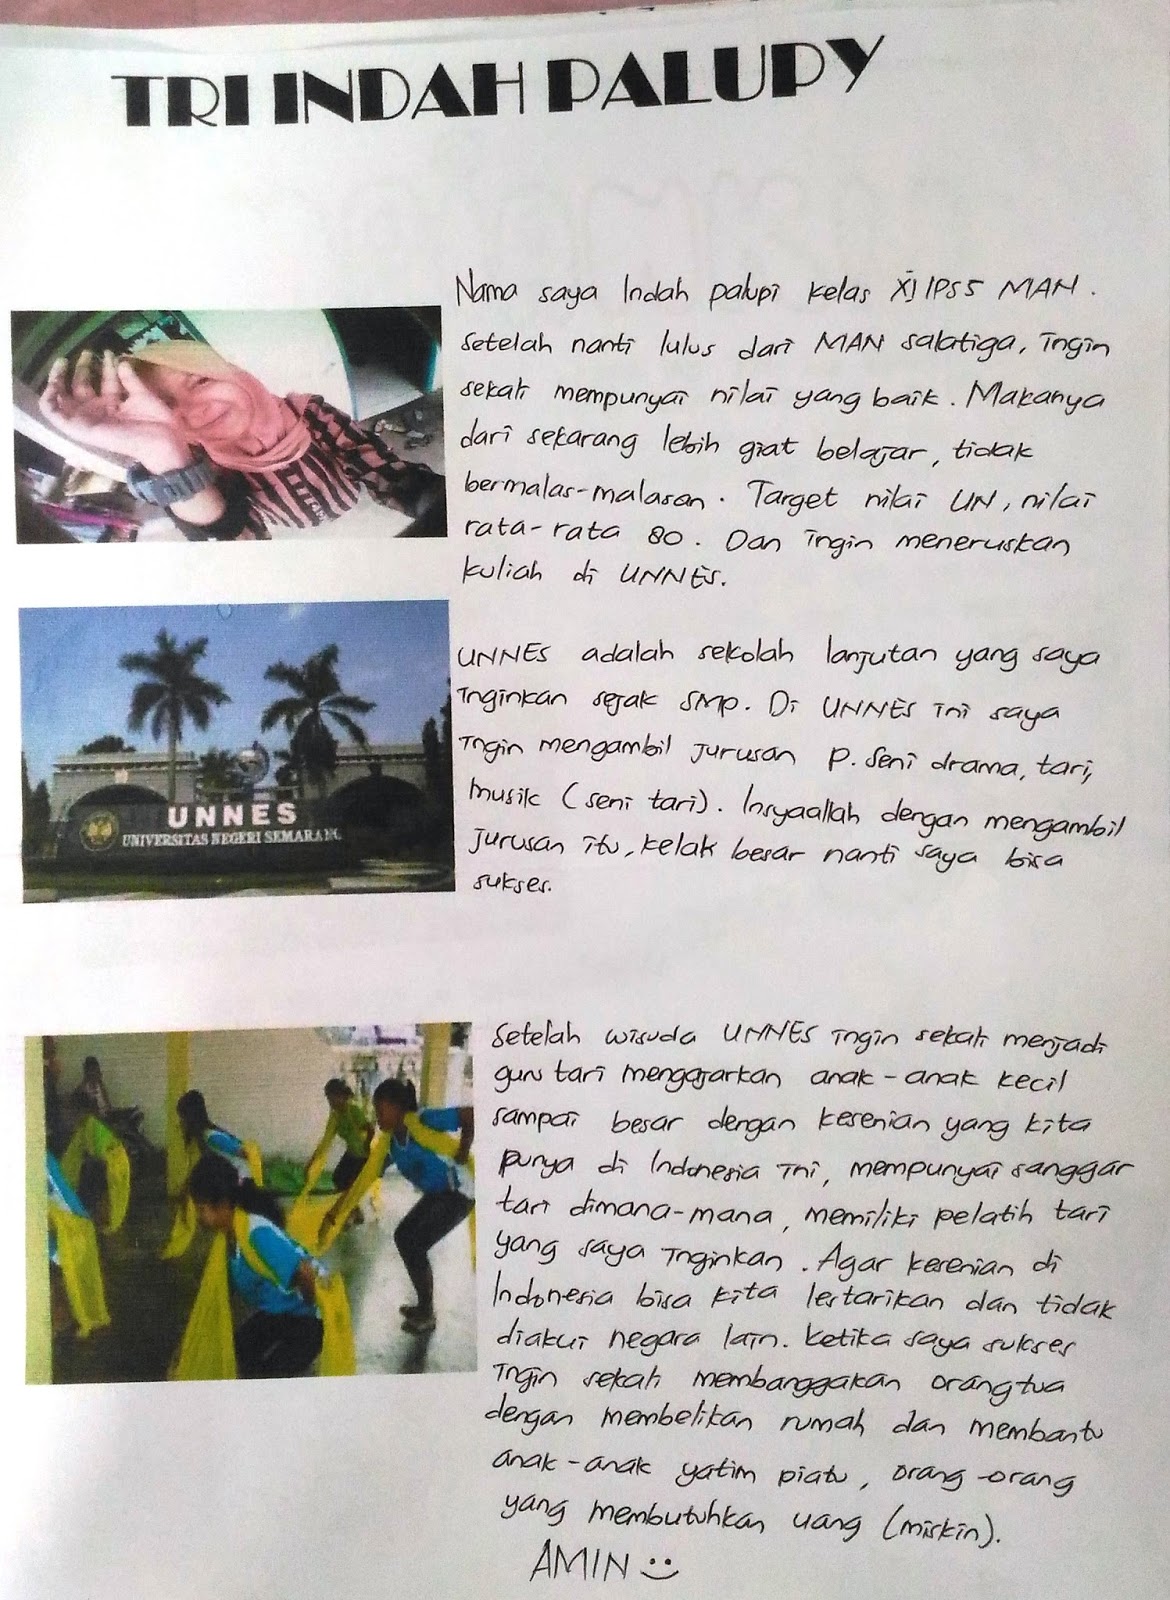 TRI INDAH PALUPY
Nama saya Indah palupi kelas XI IPS 5 MAN.
setelah nanti lulus dari MAN salatiga, ingin
sekali mempunyai nilai yang baik. Makanya
dari sekarang lebih giat belajar, tidak
bermalas-malasan. Target nilai UN, nilai
rata-rata 80. Dan ingin meneruskan
kuliah di UNNES.
UNNES adalah sekolah lanjutan yang saya
inginkan sejak SMP. Di UNNES ini saya
ingin mengambil jurusan P. Seni drama, tari,
musik (seni tari). Insyaallah dengan mengambil
jurusan itu, kelak besar nanti saya bisa
sukses.
UNNES
UNIVERSITAS NEGERI SEMARANG
Setelah wisuda UNNES ingin sekali menjadi
guru tari mengajarkan anak-anak kecil
sampai besar dengan kesenian yang kita
punya di Indonesia ini, mempunyai sanggar
tari dimana-mana, memiliki pelatih tari
yang saya inginkan. Agar kesenian di
Indonesia bisa kita lestarikan dan tidak
diakui negara lain. Ketika saya sukses
ingin sekali membanggakan orangtua
dengan membelikan rumah dan membantu
anak-anak yatim piatu, orang-orang
yang membutuhkan uang (miskin).
AMIN :)